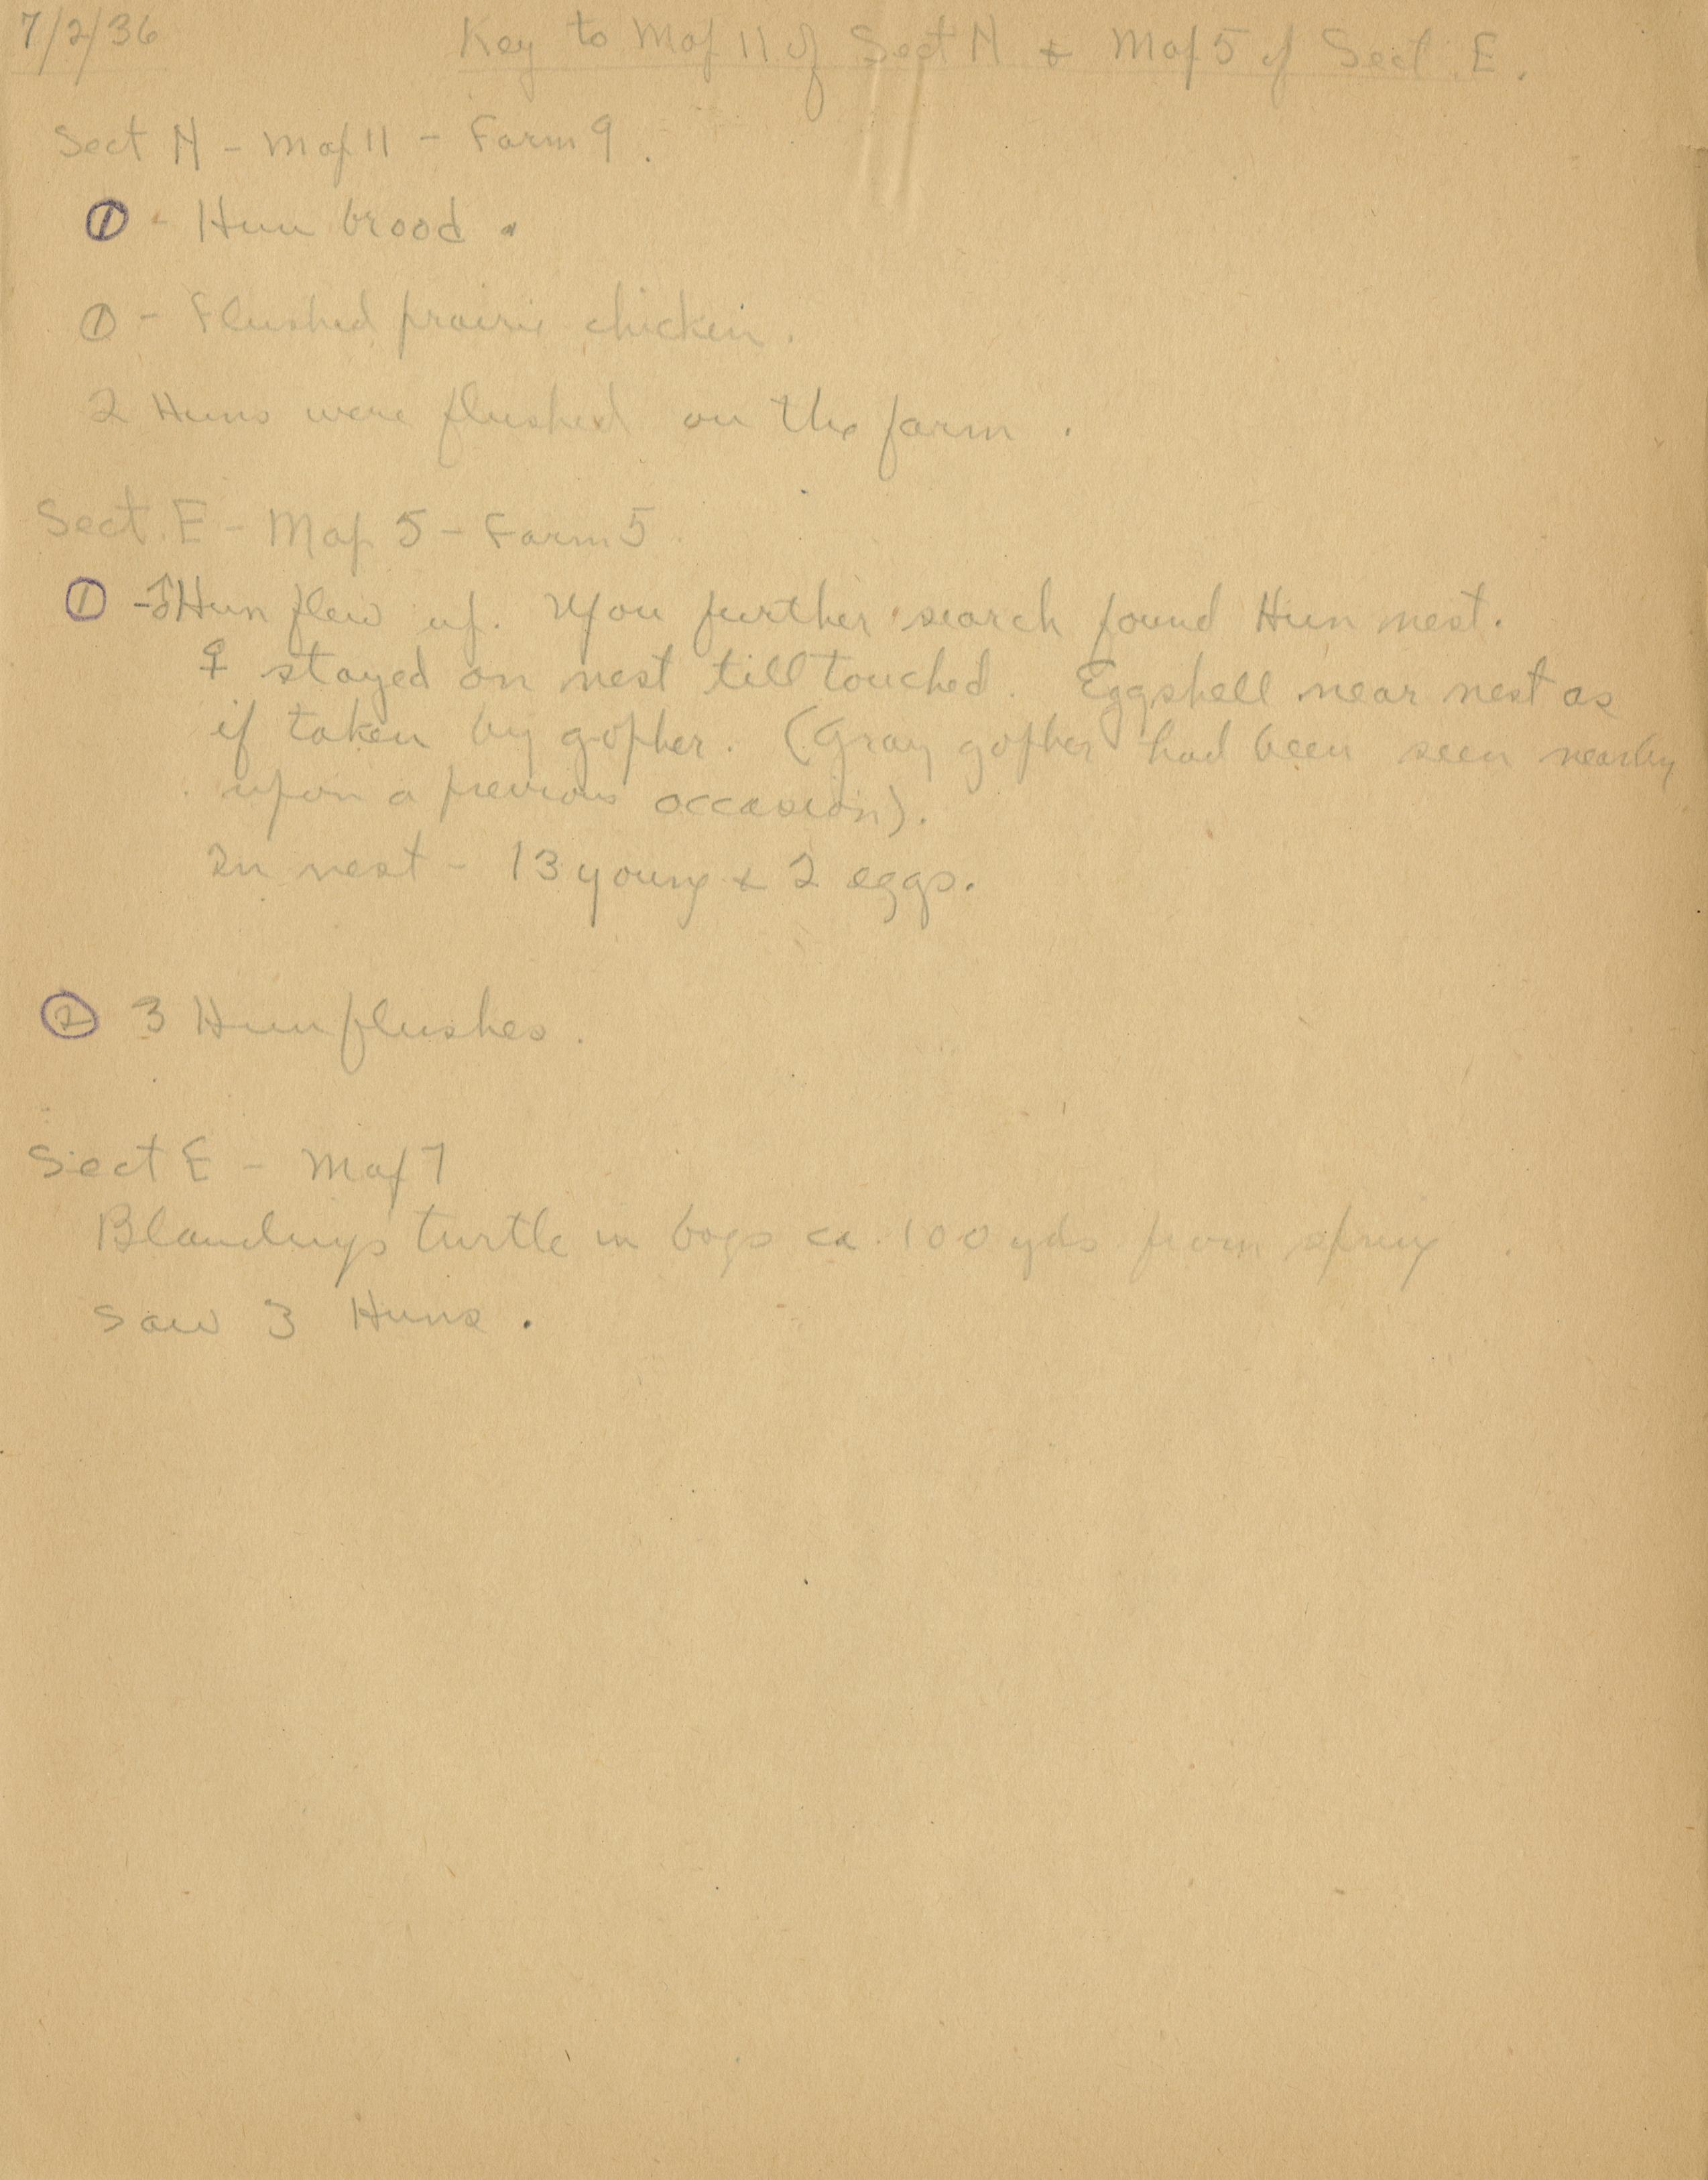 7/2/36
Key to Map 11 of Sect N & Map 5 of Sect. E.
Sect N - Map 11 - Farm 9.
① - Hun brood.
① - Flushed prairie chicken.
2 Huns were flushed on the farm.
Sect. E - Map 5 - Farm 5
① - ♂ Hun flew up. Upon further search found Hun nest.
♀ stayed on nest till touched. Eggshell near nest as
if taken by gopher. (Gray gopher had been seen nearby
upon a previous occasion).
In nest - 13 young & 2 eggs.
② 3 Hun flushes.
Sect E - Map 7
Blandings turtle in bogs ca. 100 yds from spring.
Saw 3 Huns.